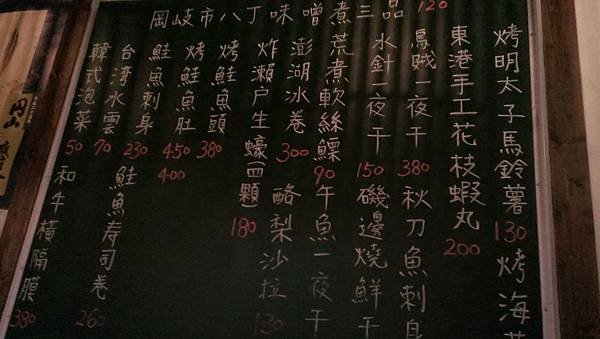 岡岐市八丁味噌煮三品 120
烤明太子馬鈴薯 130
烤海
東港手工花枝蝦丸 200
烏賊一夜干 380
秋刀魚刺身
水針一夜干 150
磯邊燒鮮干
荒煮軟絲鰾 90
午魚一夜干
澎湖冰卷 300
酪梨沙拉 130
炸瀨戶生蠔(四顆) 180
烤鮭魚頭 380
烤鮭魚肚 450
400
鮭魚刺身 230
鮭魚壽司卷 260
台湾水雲 70
韓式泡菜 50
和牛橫隔膜 380